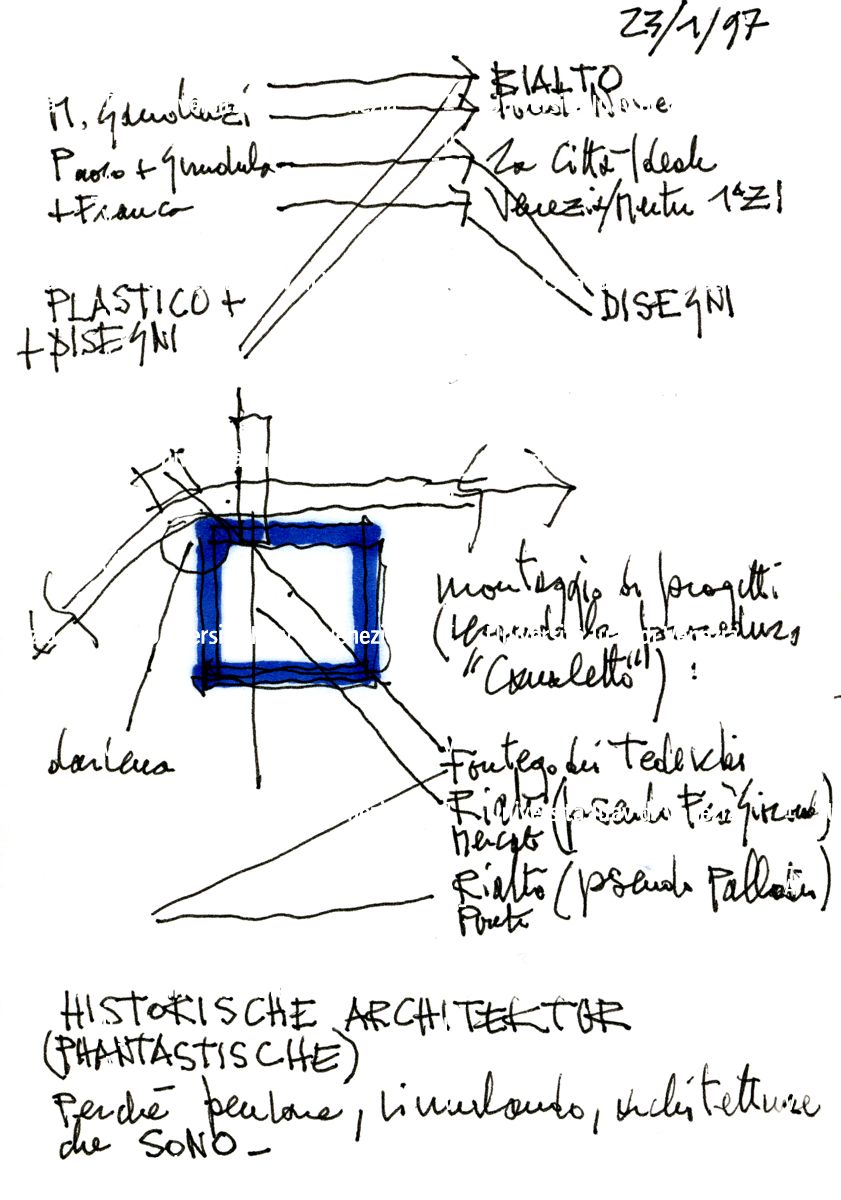 23/1/97
RIALTO
M.
Fond. Nove
Paolo +
La Città Ideale
+ Franca
Venezia/Mestre 1ª ZI
PLASTICO +
+ DISEGNI
DISEGNI
montaggio di progetti
"Canaletto") :
darsena
Fontego dei Tedeschi
Rialto (pseudo Fra Giocondo)
Mercato
Rialto (pseudo Palladio)
Ponte
HISTORISCHE ARCHITEKTUR
(PHANTASTISCHE)
Perché pensare, simulando, architetture
che SONO –